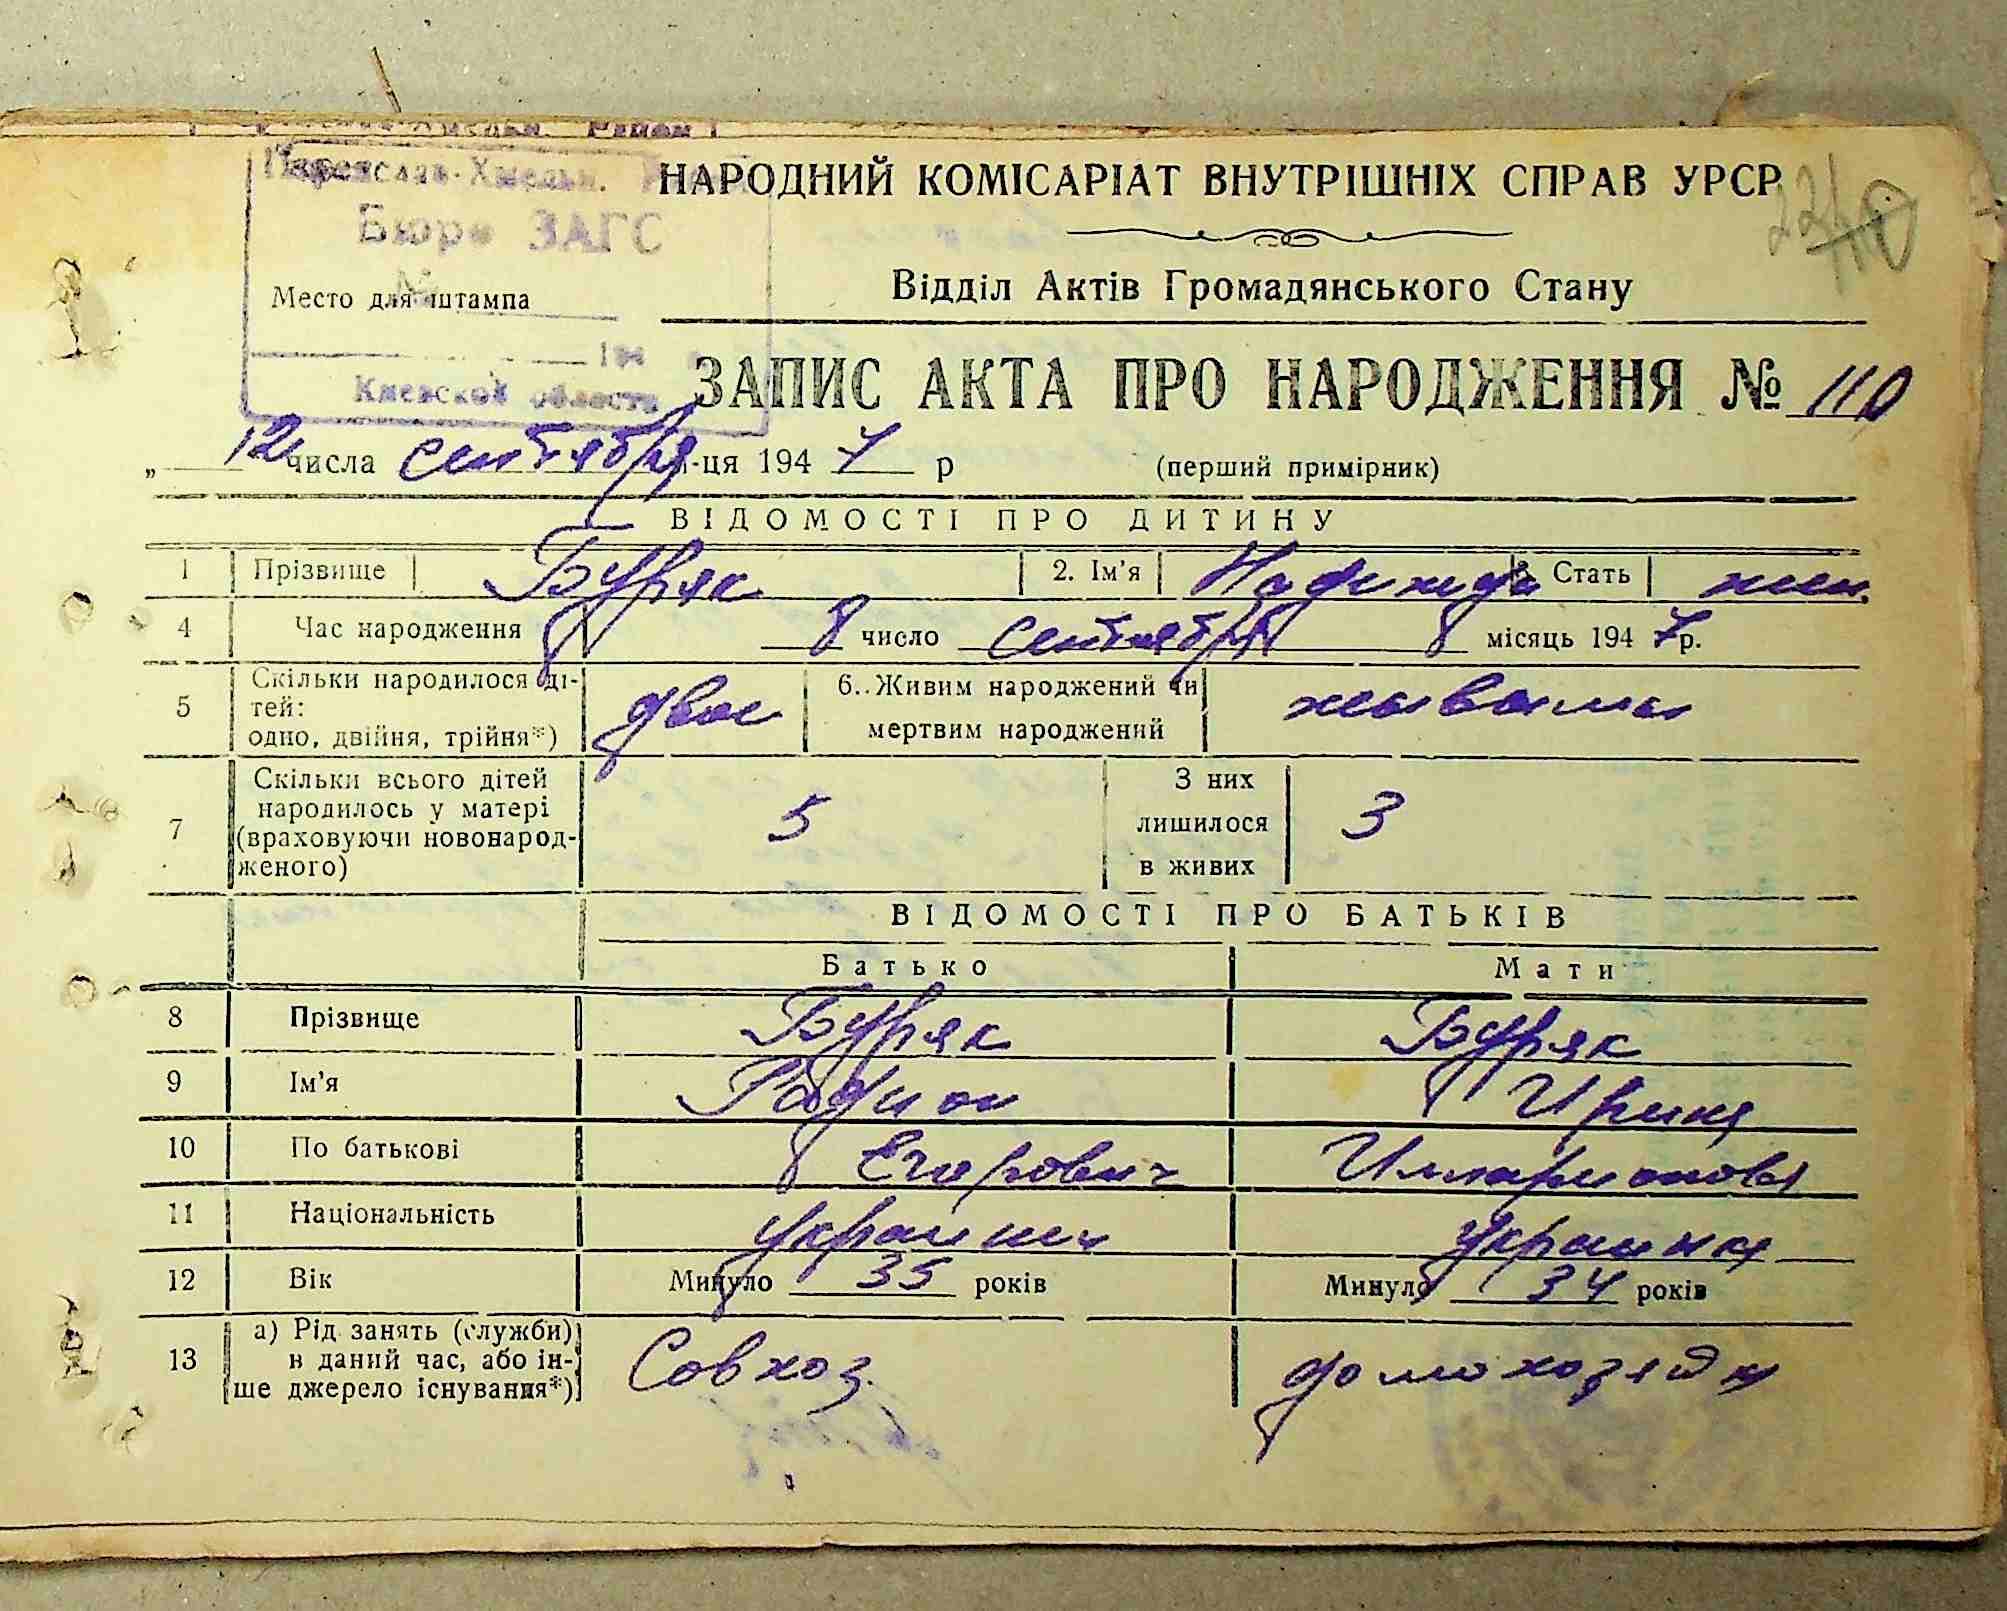 Переяслав-Хмельн.
НАРОДНИЙ КОМІСАРІАТ ВНУТРІШНІХ СПРАВ УРСР
Бюро ЗАГС
№
Место для штампа
Відділ Актів Громадянського Стану
194
Киевской области
ЗАПИС АКТА ПРО НАРОДЖЕННЯ № 110
„ 12 числа сентября м-ця 1947 р (перший примірник)
ВІДОМОСТІ ПРО ДИТИНУ
1 Прізвище Буряк 2. Ім'я Надежда 3. Стать жен.
4 Час народження 8 число сентября місяць 1947 р.
5 Скільки народилося ді-
тей:
одно, двійня, трійня*) двое 6. Живим народжений чи
мертвим народжений живыми
7 Скільки всього дітей
народилось у матері
(враховуючи новонарод-
женого) 5 З них
лишилося
в живих 3
ВІДОМОСТІ ПРО БАТЬКІВ
Батько Мати
8 Прізвище Буряк Буряк
9 Ім'я Родион Ирина
10 По батькові Егорович Илларионовн
11 Національність украинец украинка
12 Вік Минуло 35 років Минуло 34 років
13 а) Рід занять (служби)
в даний час, або ін-
ше джерело існування*) Совхоз. домохозяйка